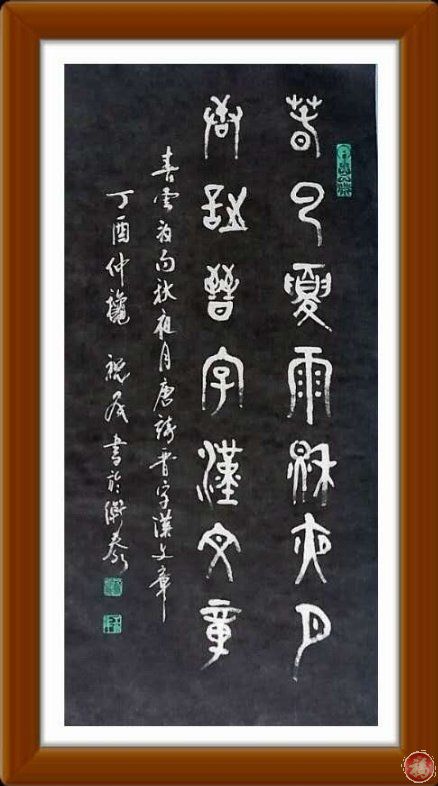 春云夏雨秋夜月
唐詩晉字漢文章
春雲夏雨秋夜月唐詩晋字漢文章
丁酉仲龝 書於
福